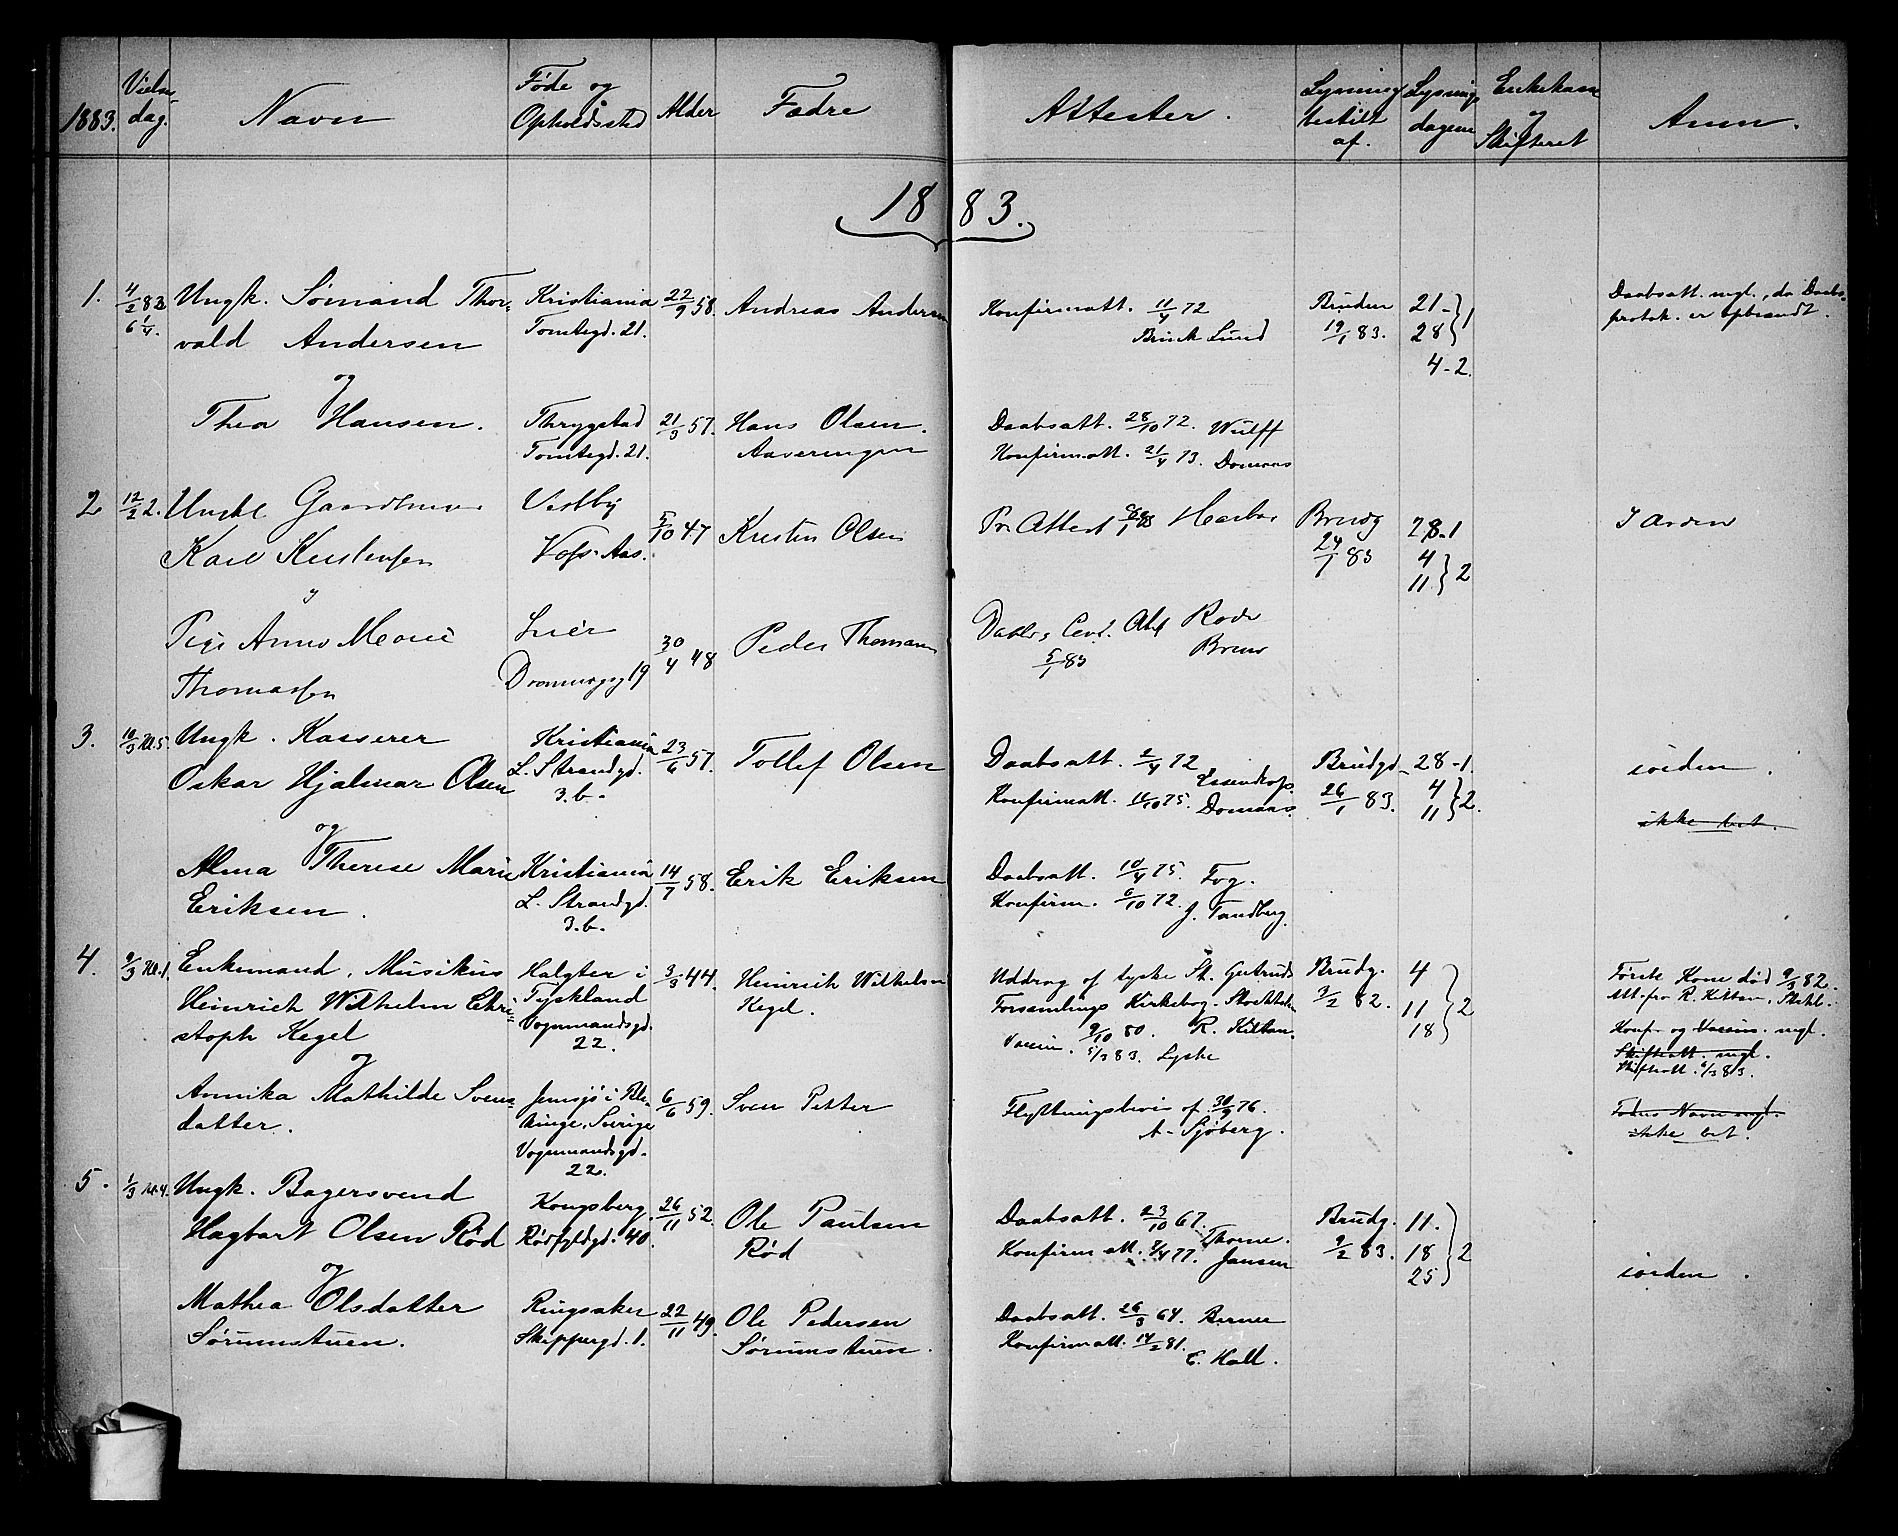 1883.
Vielses dag.
Navn
Føde og Opholdssted
Alder
Fædre
Attester.
Lysning bestilt af.
Lysnings dagene
Enkekasse og Skifteret
Anm.
1883.
1. 4/2 83 6 1/4.
Ungk. Sømand Thor-
vald Andersen
Kristiania
Tomtegd. 21.
22/9 58.
Andreas Andersen
Konfirmatt. 11/4 72
Brick Lund
Bruden
19/1 83.
21-
28 } 1
4-2.
Daabsatt. mgl., da Daabs-
protok. er opbrændt.
og
Thea Hansen.
Thrygstad
Tomtegd. 21.
21/3 57.
Hans Olsen.
Aaverengen
Daabsatt. 28/10 72. Wulff
Konfirmatt. 21/4 73. Domaas
2 12/2 2.
Ungkl Gaardbruger
Karl Kristensen
Vestby
Vos. Aas.
5/10 47
Kristen Olsen
Pr. Attest
Brudg
24/1 83
28-1
4
11 } 2
I Orden
og
Pige Anne Marie
Thomassen
Lier
Drammensg 19
30/4 48
Peder Thomassen
Daabs Conf. Att Rode
5/1 83
3. 10/3 Kl. 5.
Ungk. Kasserer
Oskar Hjalmar Olsen
Kristiania
L. Strandgd.
3. b.
23/6 57.
Tollef Olsen
Daabsatt. 2/4 72
Konfirmatt. 11/10 75. Domaas.
Brudgd.
26/1 83.
28-1.
4
11 } 2.
iorden.
ikke bet.
og
Alma Therese Marie
Eriksen.
Kristiania
L. Strandgd.
3. b.
14/7 58.
Erik Eriksen
Daabsatt. 10/4 75. Fog.
Konfirm. 6/10 72. J. Tandberg.
4. 9/3 Kl. 1.
Enkemand, Musikus
Heinrich Wilhelm Chri-
stoph Kegel
Halgter i
Tyskland
Vognmandsgd.
22.
3/3 44.
Heinrich Wilhelm
Kegel.
Uddrag af tyske St. Gertruds
Forsamlings Kirkebog. Stockholm
9/10 80. R. Kiltan.
Vaccin. 5/3 83. Lyshe
Brudg.
3/2 82.
4
11
18 } 2
Første Kone død 9/3 82.
Att. fra R. Kiltan, Stkhl.
Konf. og Vaccins. mgl.
Skifteatt. mgl.
Skifteatt. 6/3 83.
og
Annika Mathilde Svens-
datter.
Jemsjö i Ble-
kinge, Sverige
Vognmandsgd.
22.
6/6 59.
Sven Petter
Flytningsbevis af 30/9 76.
A. Sjöberg.
Faders Navn mgl.
ikke bet.
5. 1/3 Kl. 4.
Ungk. Bagersvend
Hagbart Olsen Rød
Kongsberg.
Rødfyldgd. 40.
26/11 52.
Ole Paulsen
Rød
Daabsatt. 23/10 67. Thorne.
Konfirmatt. 7/4 77. Jansen
Brudg.
9/2 83.
11.
18
25 } 2
iorden.
og
Mathea Olsdatter
Sørumstuen.
Ringsaker
Skippergd. 1.
22/11 49.
Ole Pedersen
Sørumstuen.
Daabsatt. 26/3 64. Berner
Konfirmatt. 14/2 81.
C. Hall.